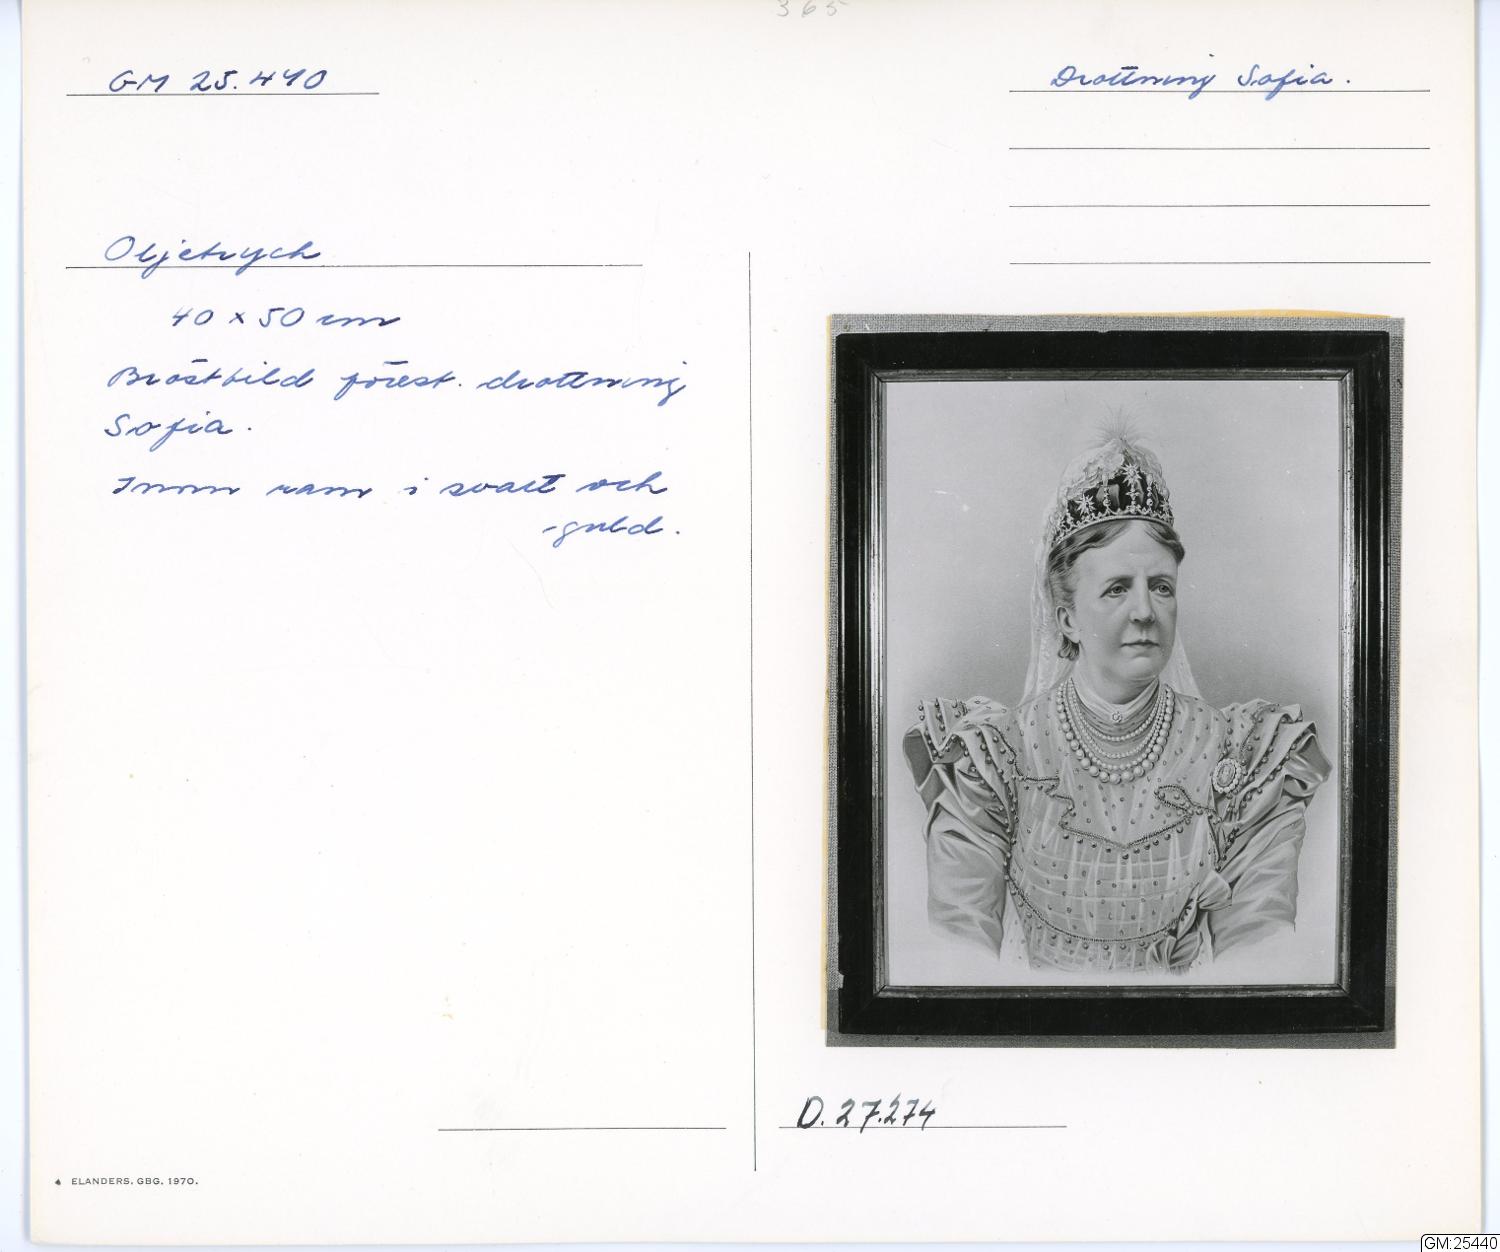 365
GM 25.440
Drottning Sofia.
Oljetryck
40 x 50 cm
Bröstbild förest. drottning
Sofia.
Inom ram i svart och
guld.
D. 27.274
ELANDERS. GBG. 1970.
GM:25440